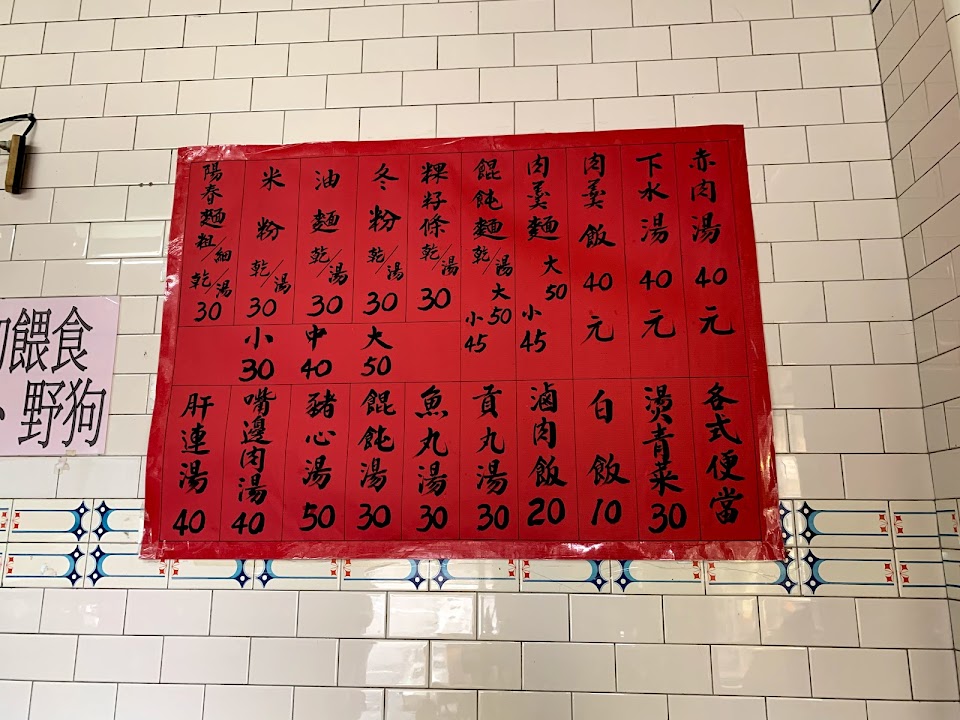 赤肉湯 40元
下水湯 40元
肉羹飯 40元
肉羹麵 大50 小45
餛飩麵 乾/湯 大50 小45
粿籽條 乾/湯 30
冬粉 乾/湯 30
油麵 乾/湯 30
米粉 乾/湯 30
陽春麵 粗/細 乾/湯 30
小30 中40 大50
各式便當
燙青菜 30
白飯 10
滷肉飯 20
貢丸湯 30
魚丸湯 30
餛飩湯 30
豬心湯 50
嘴邊肉湯 40
肝連湯 40
餵食
、野狗